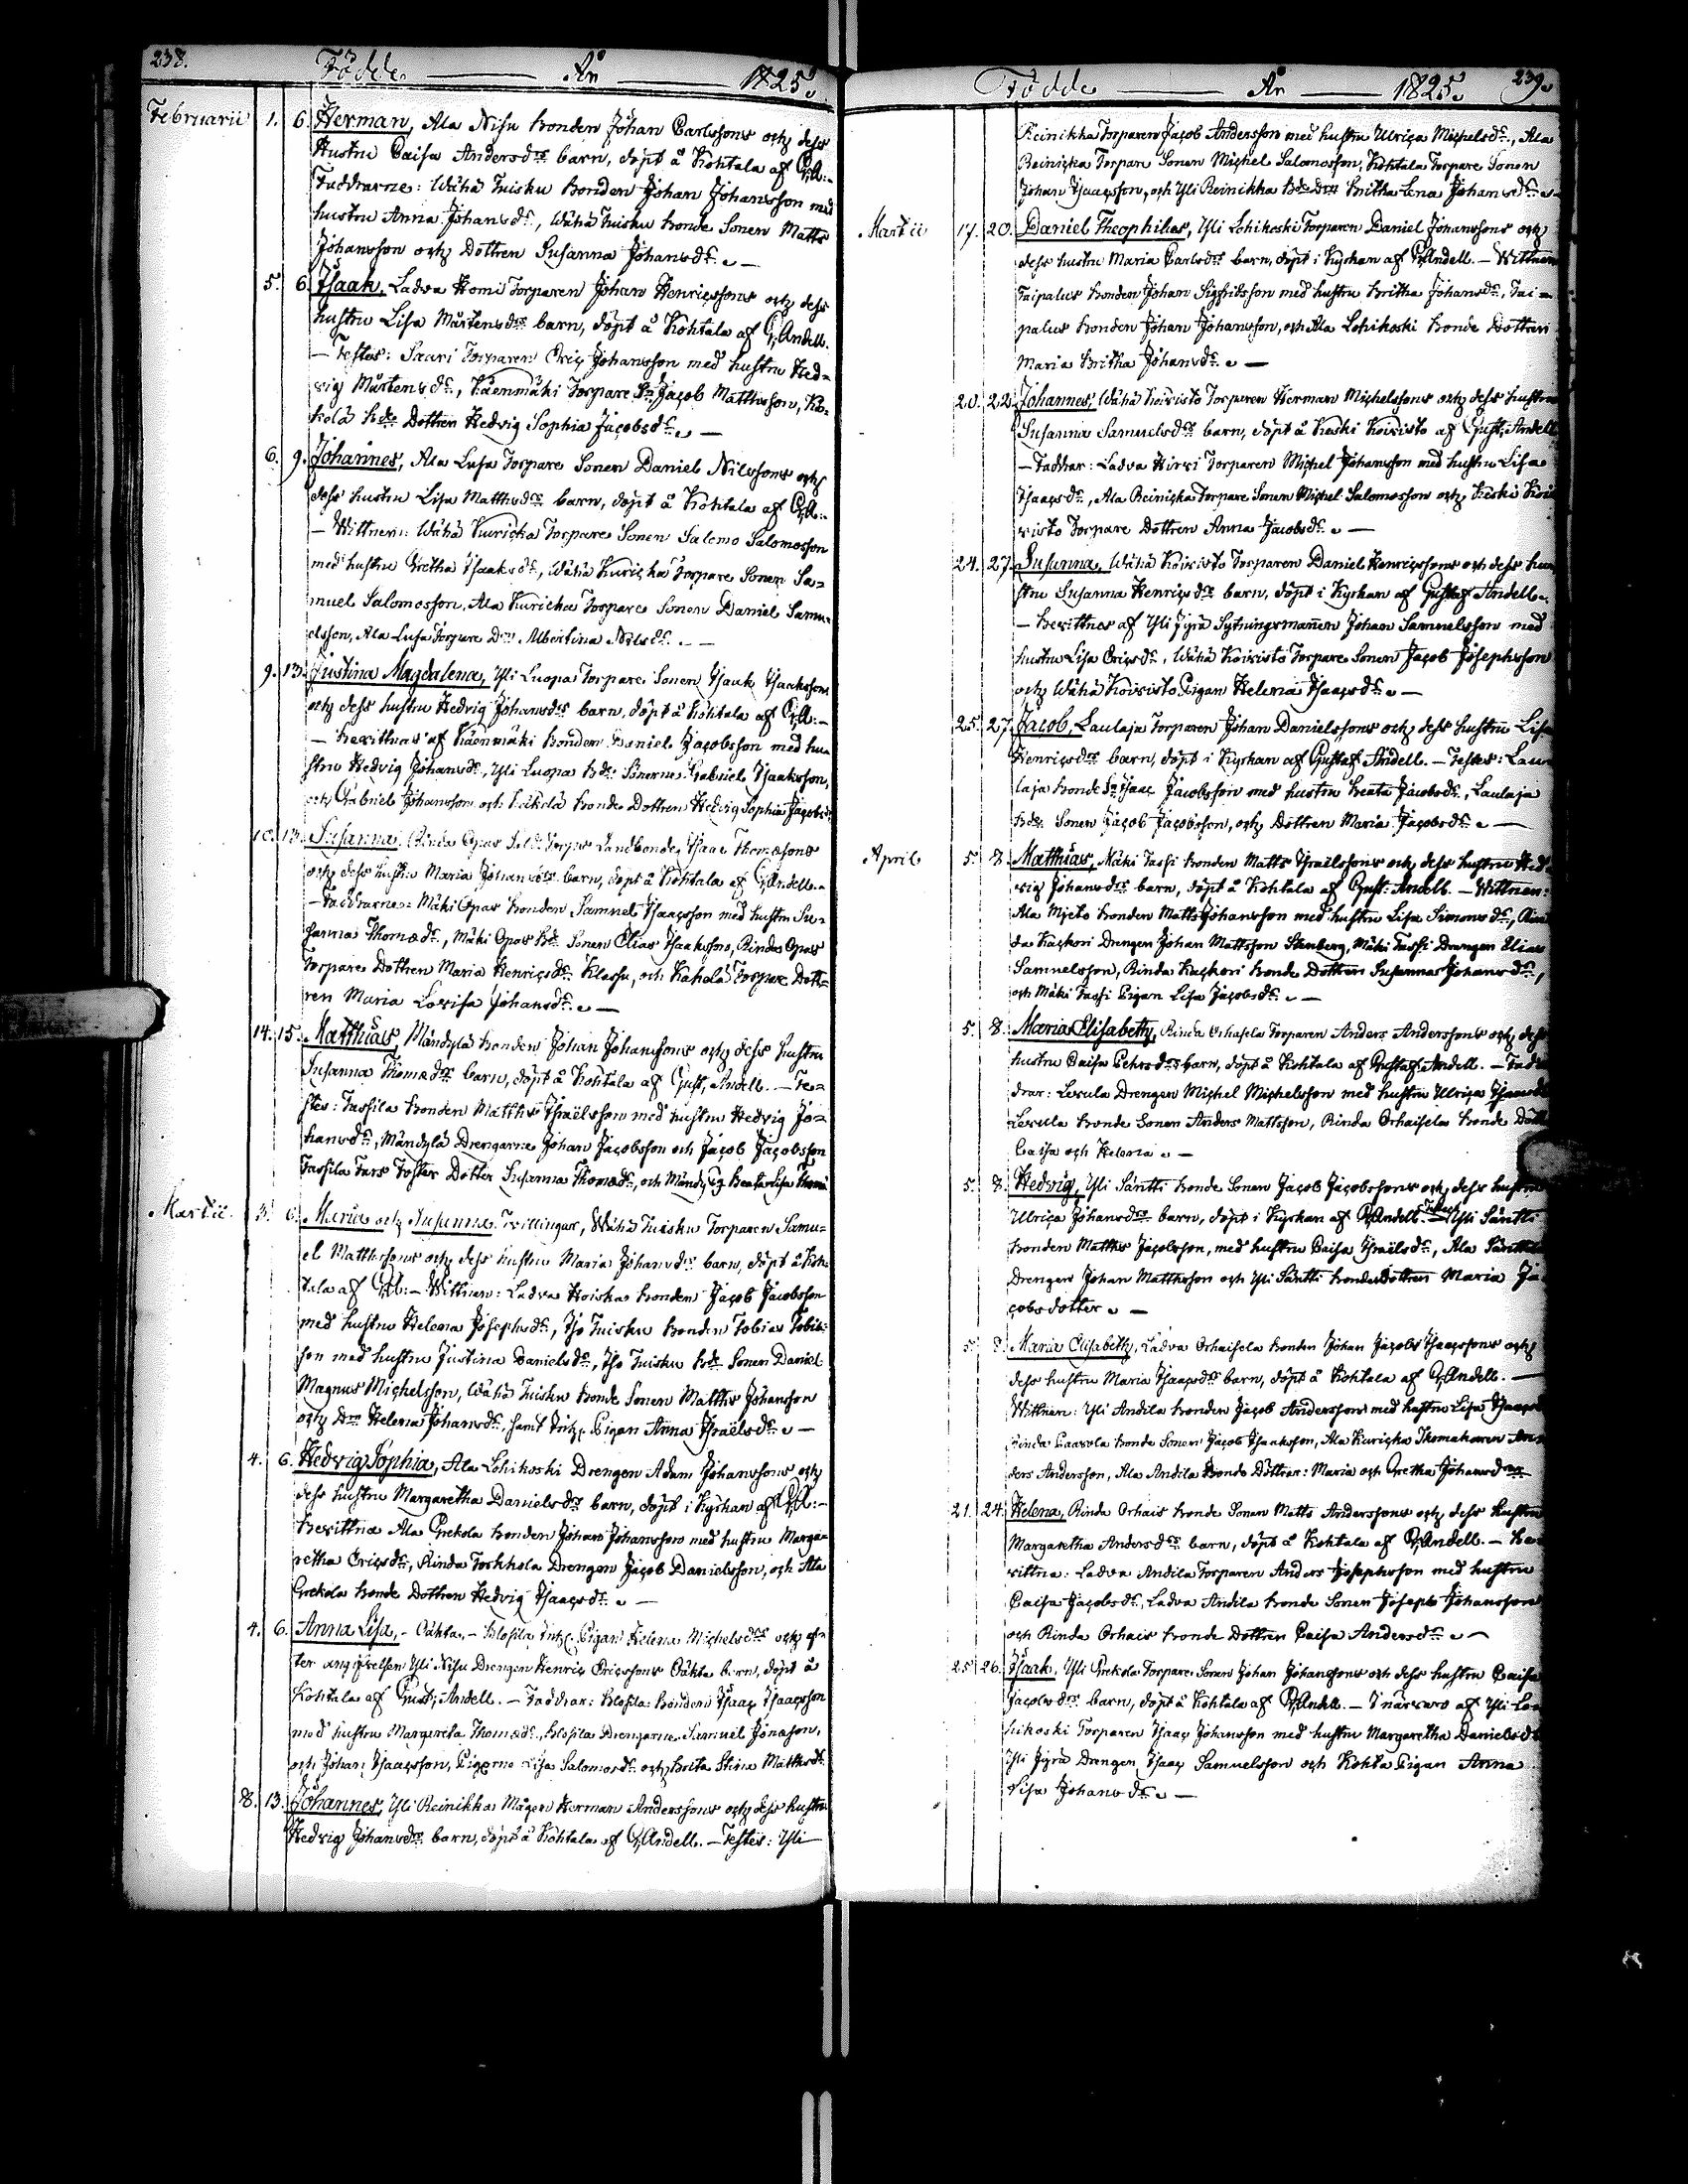 238.
Födde — År — 1825.
Februarii 1. 6. Herman, Ala Nisu bonden Johan Carlssons och dess
Hustru Caisa Andersdrs barn, döpt å Kohtala af G,A:-
Faddrarne: Wähä Tuisku Bonden Johan Johansson med
hustru Anna Johansdr, Wähä Tuisku bonde Sonen Matts
Johansson och Dottren Susanna Johansdr. —
5. 6. Isaak, Ladva Homi Torparen Johan Henricssons och dess
hustru Lisa Mårtensdrs barn, döpt å Kohtala af G,Andell.
— Testes: Saari Torparen Eric Johansson med hustru Hed-
vig Mårtensdr, Käenmäki Torpare Sn Jacob Matthsson,
bde Dottren Hedvig Sophia Jacobsdr. —
6. 9. Johannes, Ala Lusa Torpare Sonen Daniel Nilssons och
dess hustru Lisa Matthsdrs barn, döpt å Kohtala af G,A:-
— Wittnen: Wähä Kuricka Torpare Sonen Salomo Salomosson
med hustru Gretha Isaaksdr, Wähä Kuricka Torpare Sonen Sa-
muel Salomosson, Ala Kuricka Torpare Sonen Daniel Samu-
elsson, Ala Lusa Torpare Drn Albertina Nilsdr. —
9. 13. Justina Magdalena, Yli Luopa Torpare Sonen Isaak Isaakssons
och dess hustru Hedvig Johansdrs barn, döpt å Kohtala af G,A:-
— bevittnas af Käenmäki bonden Daniel Jacobsson med hu-
stru Hedvig Johansdr, Yli Luopa bde Sönerne: Gabriel Isaaksson,
och Gabriel Johansson och bonde Dottren Hedvig Sophia Jacobsdr
10. 13. Susanna, Rinda Opas Torpar Landbonde, Isaac Thomæsons
och dess hustru Maria Johansdrs barn, döpt å Kohtala af G,Andell.-
— Faddrarne: Mäki Opas bonden Samuel Isaacsson med hustru Su-
sanna Thomædr, Mäki Opas bde Sonen Elias Isaaksson, Rinda Opas
Torpare Dottren Maria Henricsdr Klassu, och Kahola Torpare Dott-
ren Maria Lovisa Johansdr. —
14. 15. Matthias, Mändylä bonden Johan Johanssons och dess hustru
Susanna Thomædrs barn, döpt å Kohtala af Gust, Andell. — Te-
stes: Tassila bonden Matths Israëlsson med hustru Hedvig Jo-
hansdr, Mändylä Drengarne Johan Jacobsson och Jacob Jacobsson
Tassila Fars Foster Dotter Susanna Thomædr, och Beata Lisa
Martii 3. 6. Maria och Susanna Tvillingar, Wähä Tuisku Torparen Samu-
el Matthssons och dess hustru Maria Johansdrs barn, döpt å Koh-
tala af G,A:- Wittnen: Ladva Koiska bonden Jacob Jacobsson
med hustru Helena Josephsdr, Iso Tuisku bonden Tobias Tobis-
son med hustru Justina Danielsdr, Iso Tuisku bde Sonen Daniel
Magnus Michelsson, Wähä Tuisku bonde Sonen Matths Johansson
och Drn Helena Johansdr, samt Pigan Anna Israëlsdr. —
4. 6. Hedvig Sophia, Ala Lohikoski Drengen Adam Johanssons och
dess hustru Margaretha Danielsdrs barn, döpt i Kyrkan af G,A:-
bevittna Ala Grekola bonden Johan Johansson med hustru Marga-
retha Ericsdr, Rinda Torkkola Drengen Jacob Danielsson, och Ala
Grekola bonde Dottren Hedvig Isaacsdr. —
4. 6. Anna Lisa, - Oäkta, - Klosila Pigan Helena Michelsdrs och ef-
ter angifvelsen Yli Nisu Drengen Henric Ericssons Oäkta barn, döpt å
Kohtala af Gust, Andell. — Faddrar: Klosila Bonden Isaac Isaacsson
med hustru Margaretha Thomædr, Klosila Drengarne Samuel Jonæson,
och Johan Isaacsson, Pigorne Lisa Salomosdr och Brita Stina Matthsdr
8. 13. Johannes, Yli Reinikka Mågen Herman Anderssons och dess hustru
Hedvig Johansdrs barn, döpt å Kohtala af G,Andell. — Testes: Yli
Födde — År — 1825. 239.
Reinikka Torparen Jacob Andersson med hustru Ulrica Michelsdr, Ala
Reinicka Torpare Sonen Michel Salomosson, Kohtala Torpare Sonen
Johan Isaacsson, och Yli Reinikka Bde Drn Britha Lena Johansdr. —
Martii 17. 20. Daniel Theophilus, Yli Lohikoski Torparen Daniel Johanssons och
dess hustru Maria Carlsdrs barn, döpt i Kyrkan af G,Andell. — Wittnen
Taipalus bonden Johan Sigfridsson med hustru Britha Johansdr, Tai-
palus bonden Johan Johansson, och Ala Lohikoski bonde Dottren
Maria Britha Johansdr. —
20. 22. Johannes, Wähä Koivisto Torparen Herman Michelssons och dess hustru
Susanna Samuelsdrs barn, döpt å Keski Koivisto af Gust, Andell
— Faddrar: Ladva Hirvi Torparen Michel Johansson med hustru Lisa
Isaacsdr, Ala Reinicka Torpare Sonen Michel Salomosson och Keski Koi-
visto Torpare Dottren Anna Jacobsdr. —
24. 27. Susanna, Wähä Koivisto Torparen Daniel Henricssons och dess hu-
stru Susanna Henricsdrs barn, döpt i Kyrkan af Gustaf Andell.
— bevittnas af Yli Jyrä Sytningsmannen Johan Samuelsson med
hustru Lisa Ericsdr, Wähä Koivisto Torpare Sonen Jacob Josephsson
och Wähä Koivisto Pigan Helena Isaacsdr. —
25. 27. Jacob, Laulaja Torparen Johan Danielssons och dess hustru Lisa
Henricsdrs barn, döpt i Kyrkan af Gustaf Andell. — Testes: Lau-
laja bonde Sn Isaac Jacobsson med hustru Beata Jacobsdr, Laulaja
bde Sonen Jacob Jacobsson, och Dottren Maria Jacobsdr. —
April 5. 8. Matthias, Mäki Tassi bonden Matts Israëlssons och dess hustru Hed-
vig Johansdrs barn, döpt å Kohtala af Gust: Andell. — Wittnen:
Ala Mjeto bonden Matts Johansson med hustru Lisa Simonsdr, Rin-
da Kackori Drengen Johan Mattsson Stenberg, Mäki Tassi Drengen Elias
Samuelsson, Rinda Kackori bonde Dottren Susanna Johansdr,
och Mäki Tassi Pigan Lisa Jacobsdr. —
5. 8. Maria Elisabeth, Rinda Torparen Anders Anderssons och dess
hustru Caisa Pehrsdrs barn, döpt å Kohtala af Gustaf Andell. — Fad-
drar: Levula Drengen Michel Michelsson med hustru Ulrica
Levula bonde Sonen Anders Mattsson, Rinda Orhaisela bonde
Caisa och Helena. —
5. 8. Hedvig, Yli Säntti bonde Sonen Jacob Jacobssons och dess hustru
Ulrica Johansdrs barn, döpt i Kyrkan af G,Andell. — Testes Yli Säntti
bonden Matths Jacobsson, med hustru Caisa Israëlsdr, Ala Säntti
Drengen Johan Matthsson och Yli Säntti bonde Dottren Maria Ja-
cobsdotter. —
5. 8. Maria Elisabeth, Ladva Orhaisela bonden Johan Jacob Isaacssons och
dess hustru Maria Isaacsdrs barn, döpt å Kohtala af G,Andell. —
Wittnen: Yli Andila bonden Jacob Andersson med hustru Lisa
Rinda Paavola bonde Sonen Jacob Isaaksson, Ala Kuricka An-
ders Andersson, Ala Andila Bonde Döttrar: Maria och Gretha Johansdrar
21. 24. Helena, Rinda Orhais bonde Sonen Matts Anderssons och dess hustru
Margaretha Andersdrs barn, döpt å Kohtala af G,Andell. — Be-
vittna: Ladva Andila Torparen Anders Josephsson med hustru
Caisa Jacobsdr, Ladva Andila bonde Sonen Joseph Johansson
och Rinda Orhais bonde Dottren Caisa Andersdr. —
25. 26. Isaak, Yli Grekola Torpare Sonen Johan Johanssons och dess hustru Caisa
Jacobsdrs barn, döpt å Kohtala af G,Andell. — I närvaro af Yli Lo-
hikoski Torparen Isaac Johansson med hustru Margaretha Danielsdr
Yli Jyrä Drengen Isaac Samuelsson och Kohta Pigan Anna
Lisa Johansdr. —